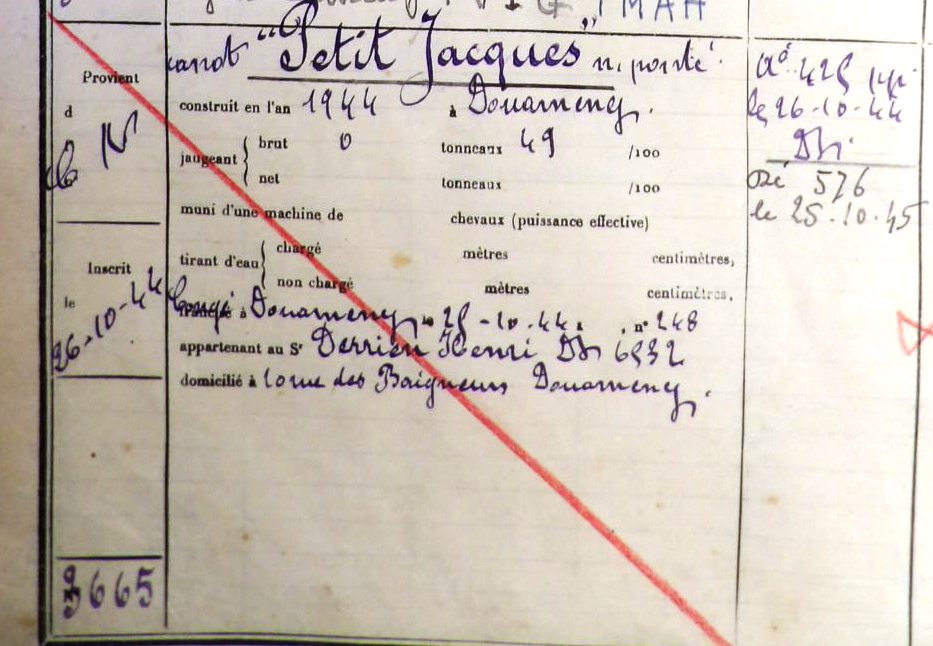 canot "Petit Jacques" n. ponté
construit en l'an 1944 à Douarnenez.
jaugeant { brut 0 tonneaux 49 /100
net tonneaux /100
muni d'une machine de chevaux (puissance effective)
tirant d'eau { chargé mètres centimètres,
non chargé mètres centimètres,
Congé à Douarnenez le 25-10-44 n° 248
appartenant au Sr Derrien Henri Dz 6532
domicilié à rue des Baigneurs Douarnenez.
Provient
d
N
Inscrit
le
26-10-44
3665
le 26-10-44
Dz
576
le 25-10-45